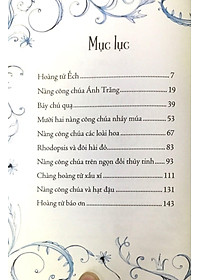 Mục lục
Hoàng tử Ếch 7
Nàng công chúa Ánh Trăng 19
Bảy chú quạ 39
Mười hai nàng công chúa nhảy múa 53
Nàng công chúa các loài hoa 67
Rhodopis và đôi hài đỏ 83
Nàng công chúa trên ngọn đồi thủy tinh 93
Chàng hoàng tử xấu xí 111
Nàng công chúa và hạt đậu 131
Hoàng tử báo ơn 143